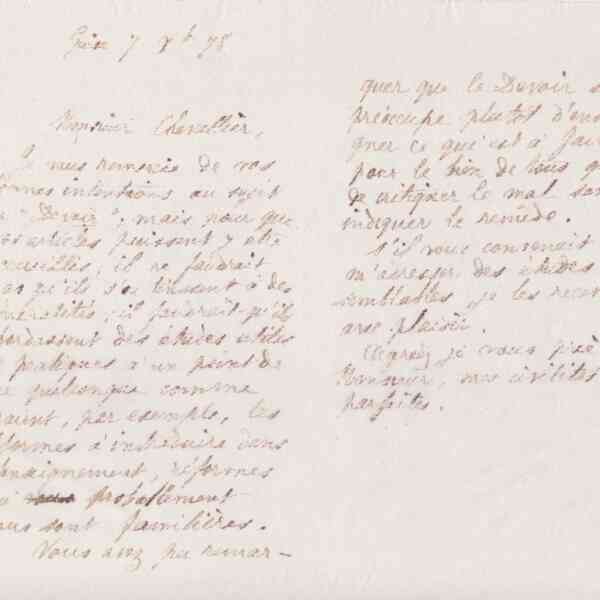 Guise 7 Xbre 78
Monsieur Chevallier,
Je vous remercie de vos
bonnes intentions au sujet
du "Devoir"; mais pour que
vos articles puissent y être
accueillis, il ne faudrait
pas qu'ils s'en tinssent à des
généralités; il faudrait qu'ils
abordassent des études utiles
et pratiques à un point de
vue quelconque comme
seraient, par exemple, les
réformes à introduire dans
l'enseignement, réformes
qui probablement
vous sont familières.
Vous avez pu remar-
quer que le Devoir se
préoccupe plutôt d'ensei
gner ce qui est à faire
pour le bien de tous que
de critiquer le mal sans
indiquer le remède.
S'il vous convenait
m'adresser des études
semblables, je les recevrai
avec plaisir.
Agréez je vous prie
Monsieur, mes civilités
parfaites.